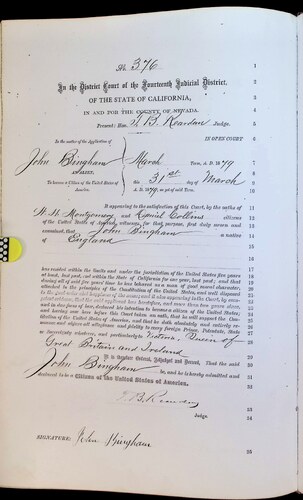 No. 376
In the District Court of the Fourteenth Judicial District,
OF THE STATE OF CALIFORNIA,
IN AND FOR THE COUNTY OF NEVADA.
Present: Hon. T. B. Reardan Judge.
IN OPEN COURT
In the matter of the Application of
John Bingham
AN ALIEN,
To become a Citizen of the United States of
America.
March Term, A. D. 1879
this 31st day of March
A. D. 1879, as yet of said Term.
It appearing to the satisfaction of this Court, by the oaths of
W. H. Montgomery and Daniel Collins citizens
of the United States of America, witnesses, for that purpose, first duly sworn and
examined, that John Bingham a native
of England
has resided within the limits and under the jurisdiction of the United States five years
at least, last past, and within the State of California for one year, last past; and that
during all of said five years' time he has behaved as a man of good moral character,
attached to the principles of the Constitution of the United States, and well disposed
to the good order and happiness of the same; and it also appearing to the Court, by com-
petent evidence, that the said applicant has heretofore, and more than two years since,
and in due form of law, declared his intention to become a citizen of the United States;
and having now here before this Court taken an oath, that he will support the Con-
stitution of the United States of America, and that he doth absolutely and entirely re-
nounce and abjure all allegiance and fidelity to every foreign Prince, Potentate, State
or Sovereignty whatever, and particularly to Victoria, Queen of
Great Britain and Ireland
It is therefore Ordered, Adjudged and Decreed, That the said
John Bingham be, and he is hereby admitted and
declared to be a Citizen of the United States of America.
T. B. Reardan
Judge.
SIGNATURE: John Bingham
1
2
3
4
5
6
7
8
9
10
11
12
13
14
15